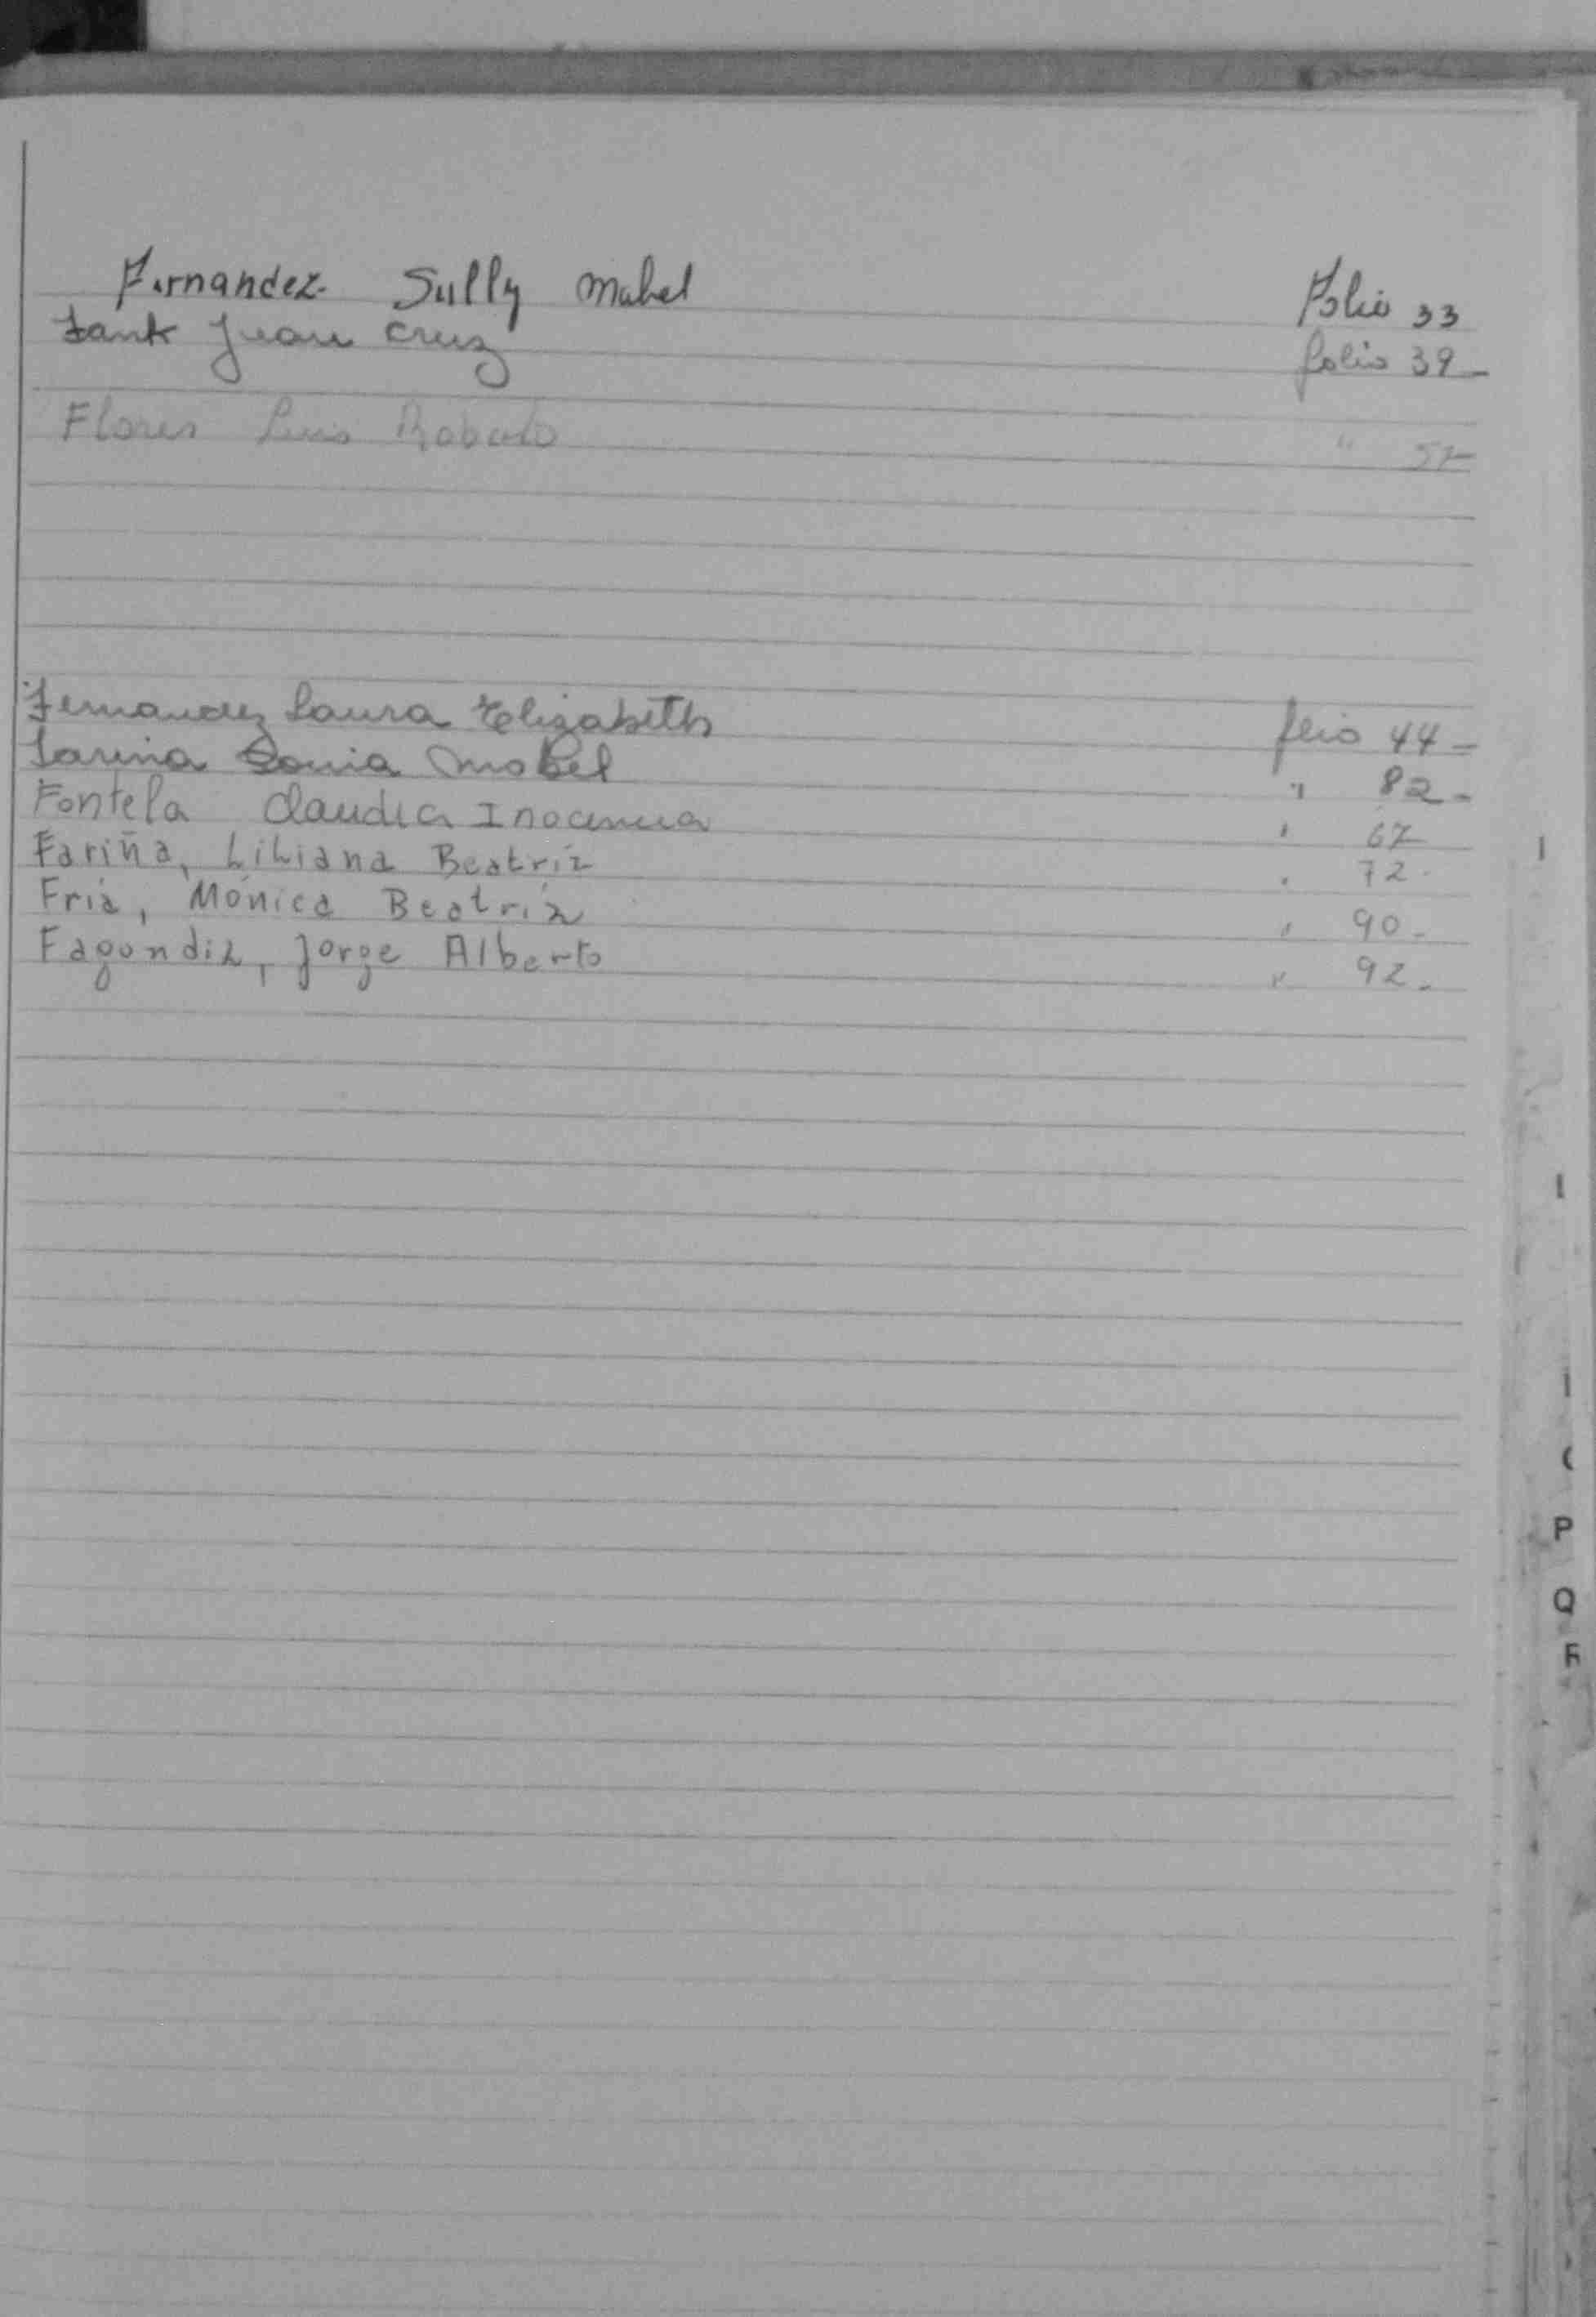 Fernandez Sully Mabel Folio 33
Fank Juan Cruz folio 39-
Flores Luis Roberto " 57
Fernandez Laura Elizabeth folio 44-
Farina Sonia Mabel " 82-
Fontela Claudia Inocencia " 67
Fariña, Liliana Beatriz " 72-
Fria, Mónica Beatriz " 90-
Fagundiz, Jorge Alberto " 92-
P
Q